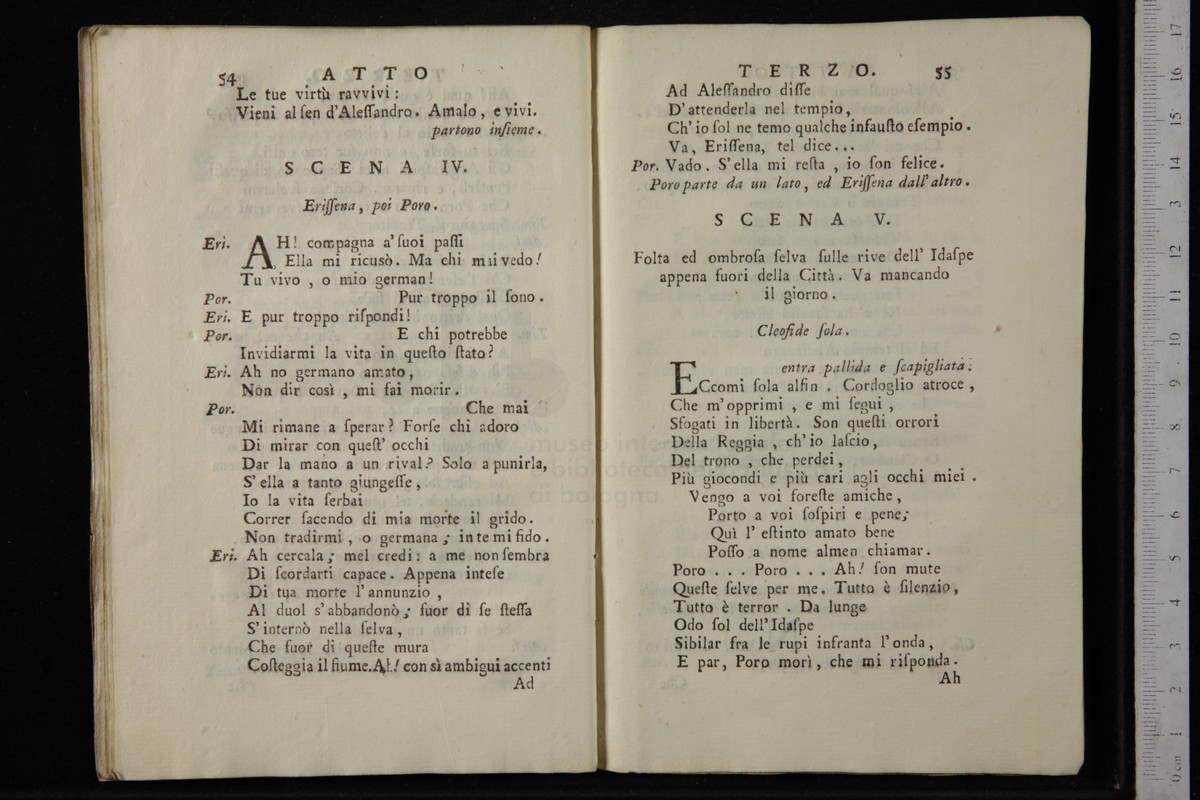 54 ATTO
Le tue virtù ravvivi:
Vieni al ſen d'Aleſſandro. Amalo, e vivi.
partono inſieme.
SCENA IV.
Eriſſena, poi Poro.
Eri. AH! compagna a' ſuoi paſſi
Ella mi ricusò. Ma chi mii vedo!
Tu vivo, o mio german!
Por. Pur troppo il ſono.
Eri. E pur troppo riſpondi!
Por. E chi potrebbe
Invidiarmi la vita in queſto ſtato?
Eri. Ah no germano amato,
Non dir così, mi fai morir.
Por. Che mai
Mi rimane a ſperar? Forſe chi adoro
Di mirar con queſt' occhi
Dar la mano a un rival? Solo a punirla,
S' ella a tanto giungeſſe,
Io la vita ſerbai
Correr facendo di mia morte il grido.
Non tradirmi, o germana; in te mi fido.
Eri. Ah cercala; mel credi: a me non ſembra
Di ſcordarti capace. Appena inteſe
Di tua morte l'annunzio,
Al duol s'abbandonò; fuor di ſe ſteſſa
S'internò nella ſelva,
Che fuor di queſte mura
Coſteggia il fiume. Ah! con sì ambigui accenti
Ad
TERZO. 55
Ad Aleſſandro diſſe
D'attenderla nel tempio,
Ch' io ſol ne temo qualche infauſto eſempio.
Va, Eriſſena, tel dice...
Por. Vado. S'ella mi reſta, io ſon felice.
Poro parte da un lato, ed Eriſſena dall' altro.
SCENA V.
Folta ed ombroſa ſelva ſulle rive dell' Idaſpe
appena fuori della Città. Va mancando
il giorno.
Cleofide ſola.
entra pallida e ſcapigliata.
ECcomi ſola alfin. Cordoglio atroce,
Che m'opprimi, e mi ſegui,
Sfogati in libertà. Son queſti orrori
Della Reggia, ch'io laſcio,
Del trono, che perdei,
Più giocondi e più cari agli occhi miei.
Vengo a voi foreſte amiche,
Porto a voi ſoſpiri e pene;
Quì l' eſtinto amato bene
Poſſo a nome almen chiamar.
Poro... Poro... Ah! ſon mute
Queſte ſelve per me. Tutto è ſilenzio,
Tutto è terror. Da lunge
Odo ſol dell'Idaſpe
Sibilar fra le rupi infranta l'onda,
E par, Poro morì, che mi riſponda.
Ah